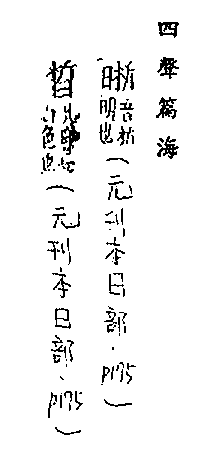 四聲篇海
晣音晢明也(元刊本日部.P175)
晳 色也(元刊本日部.P175)